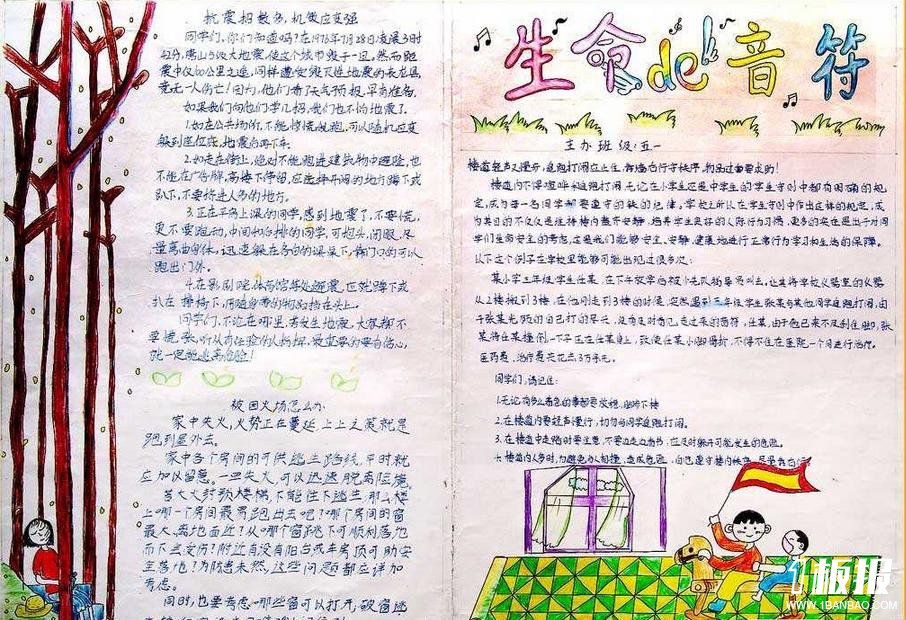 抗震招数多，机敏应变强
同学们，你们知道吗？在1976年7月28日凌晨3时
42分，唐山与
毁于一旦，然而距
震中仅100公里之遥，同样遭受毁灭性地震的
竟无一人伤亡！因为，他们看了天气预报，早有准备，
如果我们向他们学几招，我们也不怕地震了。
1.如在公共场所，不能惊慌
可以随机应变
躲到座位底，地震后再下车。
2.如走在街上，绝对不能跑进建筑物中避险，也
不能在广告牌、高楼下停留，应选择开阔的地方蹲下或
趴下，不要挤进人多的地方。
3.正在平房上课的同学，感到地震了，不要慌，
更不要跑动，中间和后排的同学，可抱头、闭眼、尽
量弯曲身体，迅速躲在各自的课桌下，靠门口的可以
跑出门外。
4.在影剧院、体育馆等处遇震，也就蹲下或
趴在排椅下，用随身带的物品挡在头上。
同学们，不论在哪里，若发生地震，大家都不
要慌张，听从有经验的人指挥，最重要的要有信心，
就一定能逃离危险！
被困火场怎么办
家中失火，火势正在蔓延，上上之策就是
跑到屋外去。
家中各个房间的可供逃生路线，平时就
应加以留意。一旦失火，可以迅速脱离险境。
若大火封锁楼梯，不能往下逃生，那么楼
上哪一个房间最易跑出去呢？哪个房间的窗
最大、离地面近？从哪个窗跳下可顺利落地
而不会受伤？附近有没有阳台或车房顶可助安
全落地？为防患未然，这些问题都应详加
考虑。
同时，也要考虑一那些窗可以打开，破窗逃
生命de音符
主办班级：五一
楼道轻声又慢行，追跑打闹应止住
楼道内不得喧哗和追跑打闹，无论在小学生还是中学生的学生守则中都有明确的规
定，成为每一名同学都要遵守的铁的纪律。学校之所以在学生守则中作出这样的规定，成
为其目的不仅仅是维持楼内整齐安静，培养学生良好的人际行为习惯，更多的实在是出于对同
学们生命安全的考虑，这是我们能够安全、安静、健康地进行正常行为学习和生活的保障。
以下这个例子在学校里能够可能出现过很多次：
某小学三年级学生任某，在下午放学后被少先队辅导员叫去，让其将学校仪器室的仪器
从2楼搬到3楼，在他刚走到3楼的时候，突然遇到三年级学生张某与其他同学追跑打闹，由
于张某光顾的自己打的尽兴，没有及时看见走过来的
任某，由于他已来不及刹住脚，张
某将任某撞倒，一下子正压在某身上，致使任某小脚骨折，不得不住在医院一个月进行治疗。
医药费、治疗费共花去3万多元。
同学们，请记住：
1.无论有多么着急的事都要放稳脚步下楼
2.在楼道内要轻声慢行，切勿与同学追跑打闹。
3.在楼道中走路时要注意，不要边走边看书，应及时躲开可能发生的危险。
板报
WWW.1BANBAO.COM